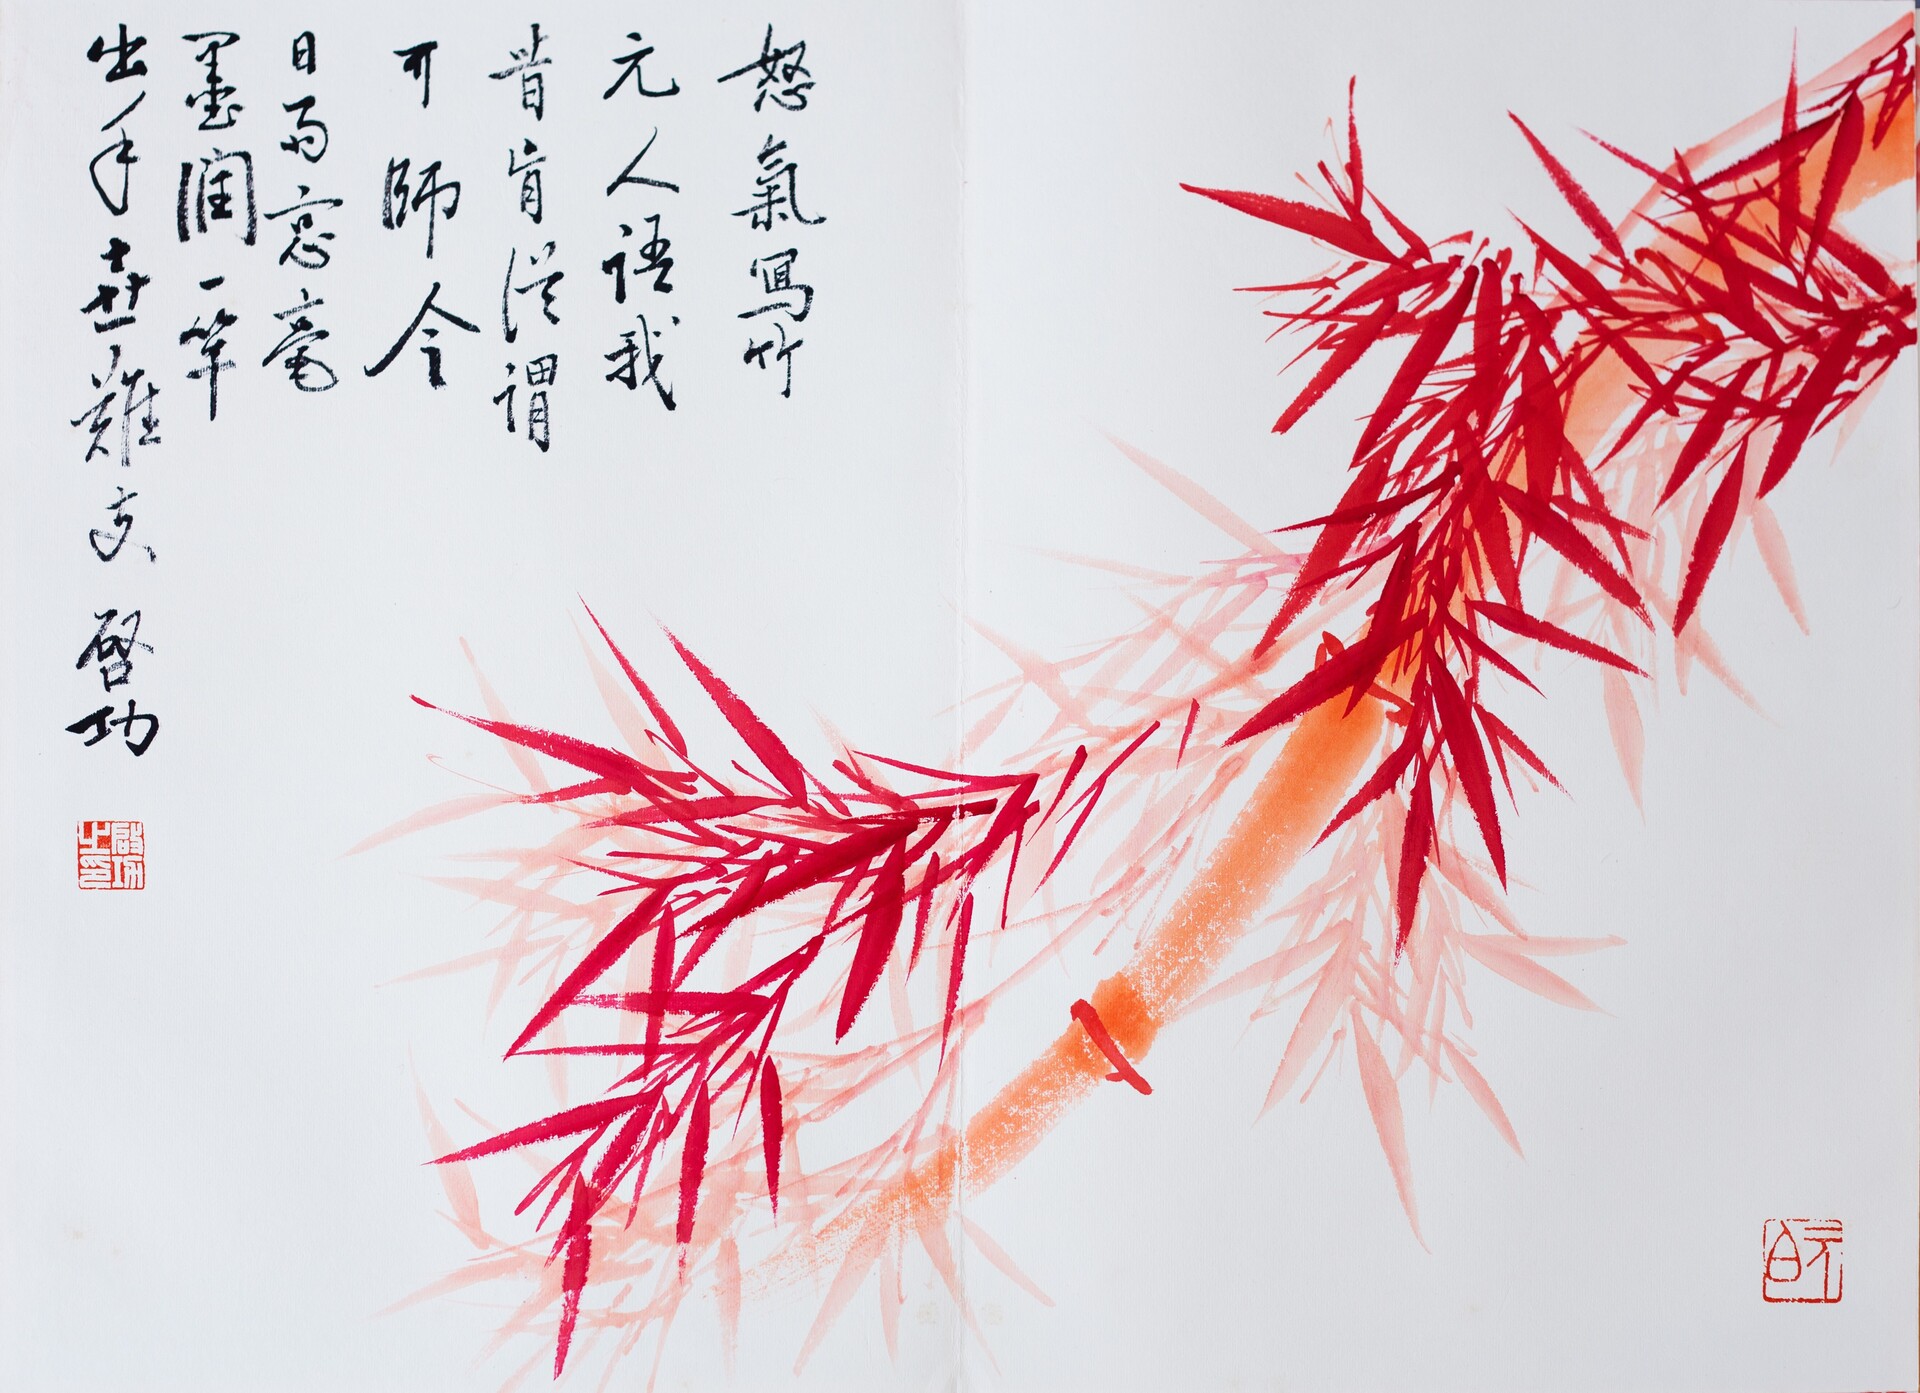 怒氣寫竹
元人語我
昔肯從謂
可師今
日雨窓毫
墨潤一竿
出手難支
啓功
啟功之印
元白